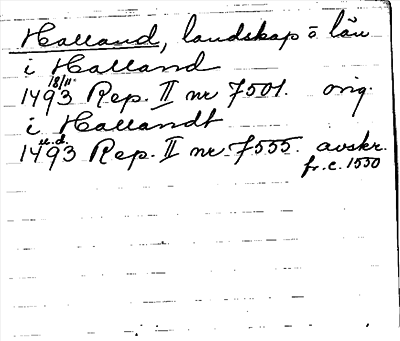 Halland, landskap o län
i Halland
18/11
1493 Rep. II nr 7501. orig.
i Hallandt
u.d.
1493 Rep. II nr 7555. avskr.
fr. c. 1550